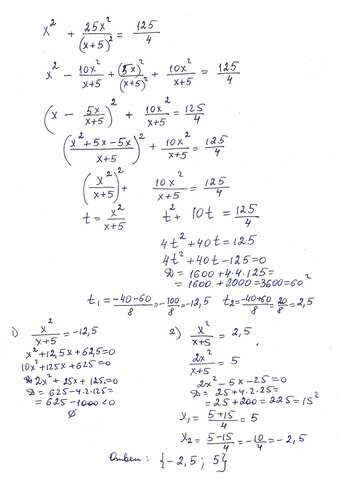 x² + 25x²/(x+5)² = 125/4
x² - 10x²/x+5 + (5x)²/(x+5)² + 10x²/x+5 = 125/4
(x - 5x/x+5)² + 10x²/x+5 = 125/4
(x²+5x-5x/x+5)² + 10x²/x+5 = 125/4
(x²/x+5)² + 10x²/x+5 = 125/4
t = x²/x+5 t² + 10t = 125/4
4t² + 40t = 125
4t² + 40t - 125 = 0
D = 1600 + 4·4·125 =
= 1600 + 2000 = 3600 = 60²
t₁ = -40-60/8 = -100/8 = -12,5 t₂ = -40+60/8 = 20/8 = 2,5
1) x²/x+5 = -12,5
x² + 12,5x + 62,5 = 0
10x² + 125x + 625 = 0
2x² + 25x + 125 = 0
D = 625 - 4·2·125 =
= 625 - 1000 < 0
∅
2) x²/x+5 = 2,5
2x²/x+5 = 5
2x² - 5x - 25 = 0
D = 25 + 4·2·25 =
= 25 + 200 = 225 = 15²
x₁ = 5+15/4 = 5
x₂ = 5-15/4 = -10/4 = -2,5
Ответ: {-2,5; 5}